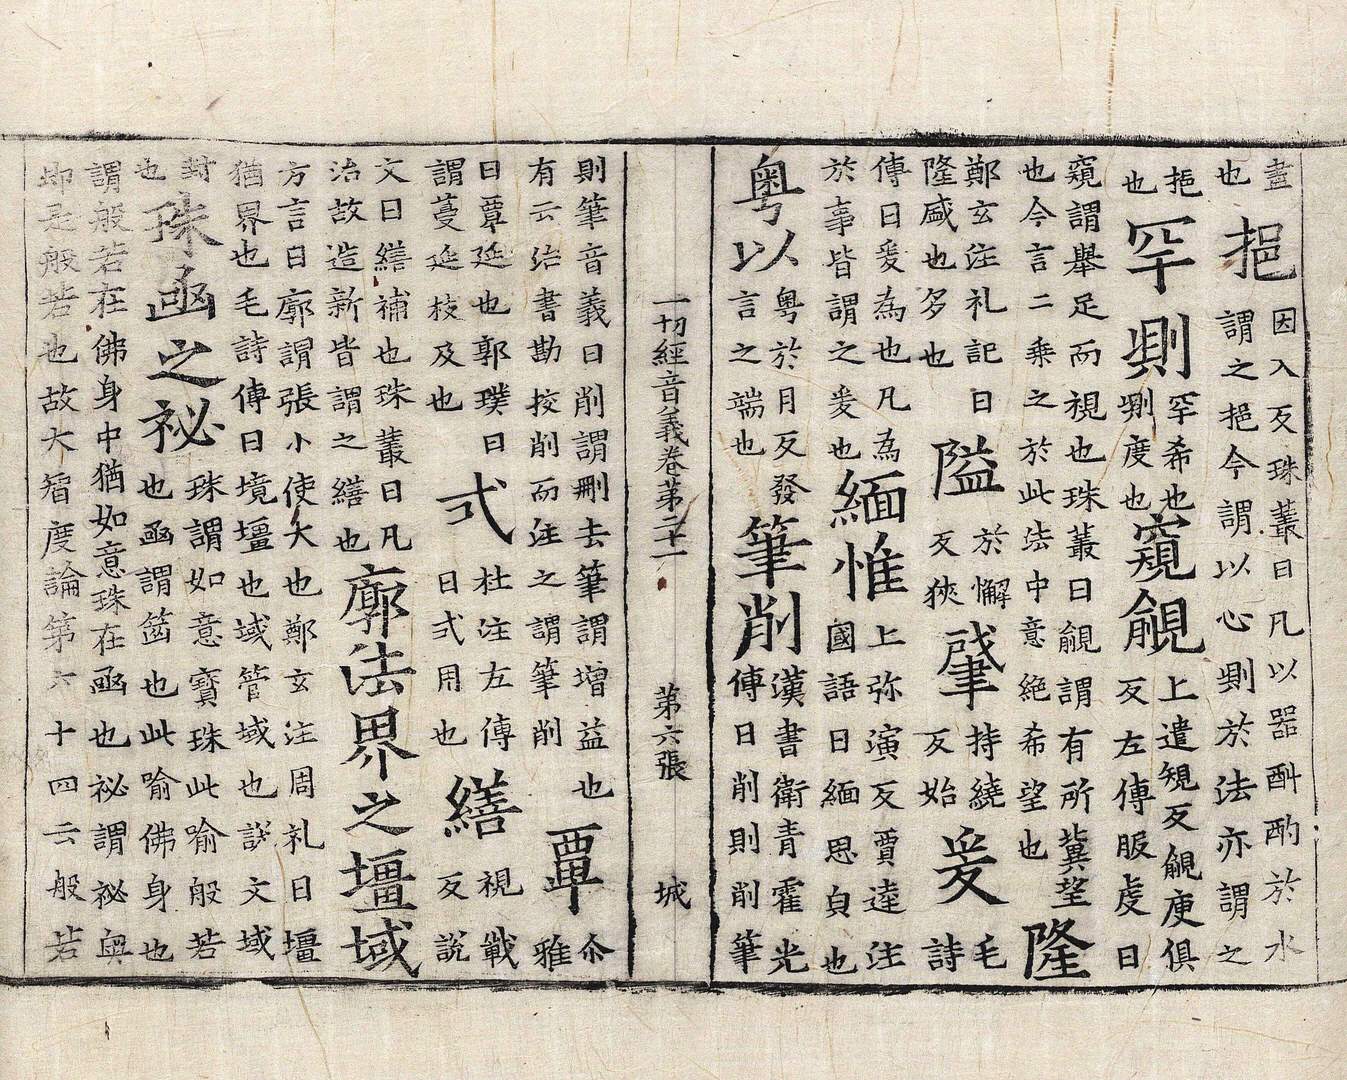 盡也挹因入反珠叢曰凡以器斟酌於水謂之挹今謂以心則於法亦謂之
挹也罕㓷罕希也㓷度也窺覦上遣規反覦庾俱反左傳服虔曰
窺謂舉足而視也珠叢曰覦謂有所冀望也今言二乘之於此法中意絕希望也隆
鄭玄注礼記曰隆盛也多也隘於懈反狹肈持繞反始爰毛詩
傳曰爰為也凡為於事皆謂之爰也緬惟上弥演反賈逵注國語曰緬思皃也
粵以粵於月反發言之端也筆削漢書衛青霍光傳曰削則削筆
一切經音義卷第二十一 第六張 城
則筆音義曰削謂刪去筆謂增益也有云治書勘挍削而注之謂筆削覃尒雅
曰覃延也郭璞曰謂蔓延枝及也弌杜注左傳曰弌用也繕視戰反說
文曰繕補也珠叢曰凡治故造新皆謂之繕也廓法界之壃域
方言曰廓謂張小使大也鄭玄注周礼曰壃猶界也毛詩傳曰境壃也域管域也說文域
封也珠函之祕珠謂如意寶珠此喻般若也函謂篋也此喻佛身也
謂般若在佛身中猶如意珠在函也祕謂祕奧即是般若也故大智度論第六十四云般若